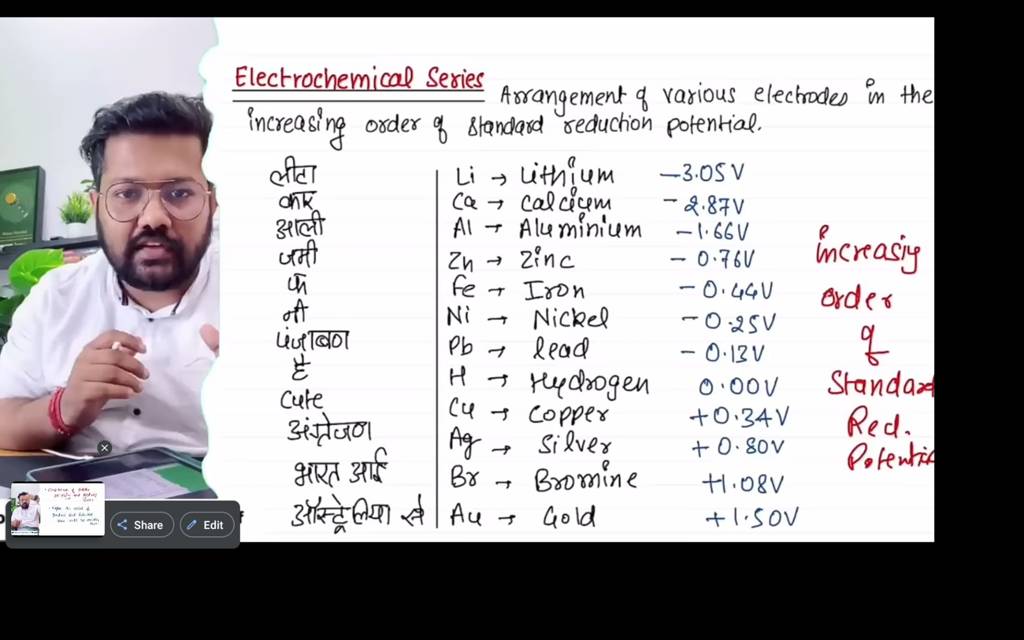 Electrochemical Series Arrangement of various electrodes in the
increasing order of standard reduction potential.
लीटा Li → Lithium -3.05V
कार Ca → Calcium -2.87V
आली Al → Aluminium -1.66V
जमी Zn → Zinc -0.76V
Fe → Iron -0.44V
नी Ni → Nickel -0.25V
पंजाबण Pb → lead -0.13V
है H → Hydrogen 0.00V
Cute Cu → Copper +0.34V
अंग्रेजण Ag → Silver +0.80V
भारत आई Br → Bromine +1.08V
ऑस्ट्रेलिया से Au → Gold +1.50V
increasing
order
of
Standard
Red.
Potential
Share
Edit